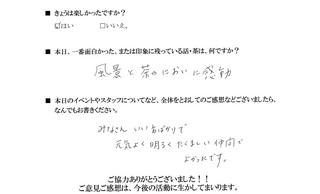 ■ きょうは楽しかったですか?
☑はい □いいえ。
■ 本日、一番面白かった、または印象に残っている話・茶は、何ですか?
風景と茶のにおいに感動
■ 本日のイベントやスタッフについてなど、全体をとおしてのご感想などございましたら、
なんでもお書きください。
みなさん いい方ばかりで
元気よく明るくたくましい仲間で
よかったです。
ご協力ありがとうございました!!
ご意見ご感想は、今後の活動に生かしてまいります。